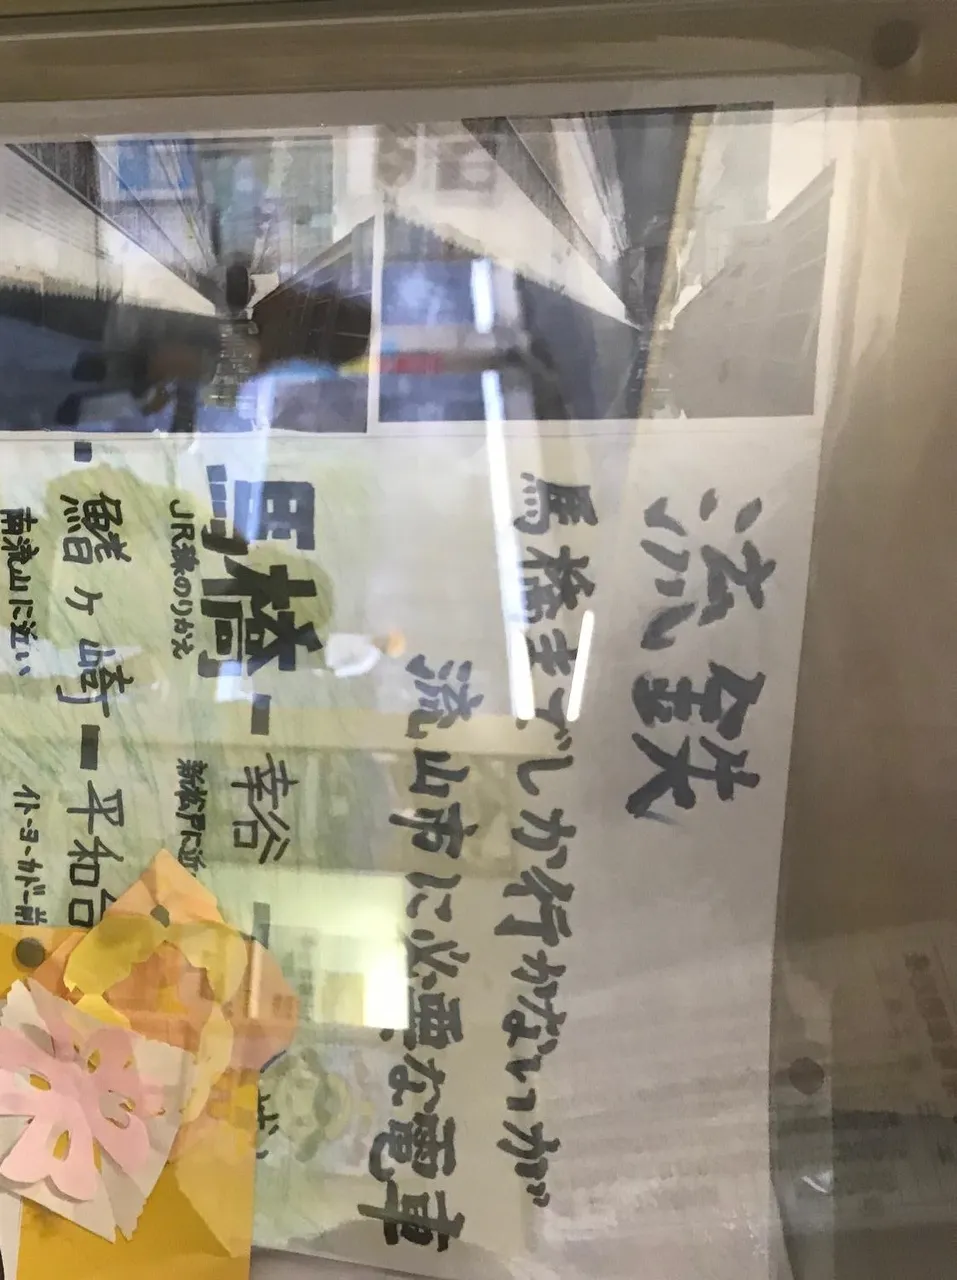 流鉄
馬橋までしか行かないが
流山市に必要な電車
馬橋ー幸谷ー
JR線のりかえ 新松戸に近
ー鰭ヶ崎ー平和台
南流山に近い イトーヨーカドー前